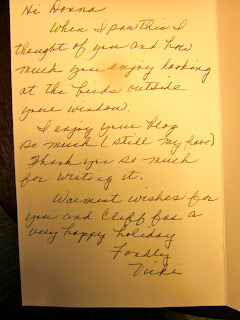 Hi Donna
When I saw this I
thought of you and how
much you enjoy looking
at the birds outside
your window.
I enjoy your blog
so much (still my fave)
Thank you so much
for writing it.
Warmest wishes for
you and Cliff for a
very happy holiday
Fondly
Vicki